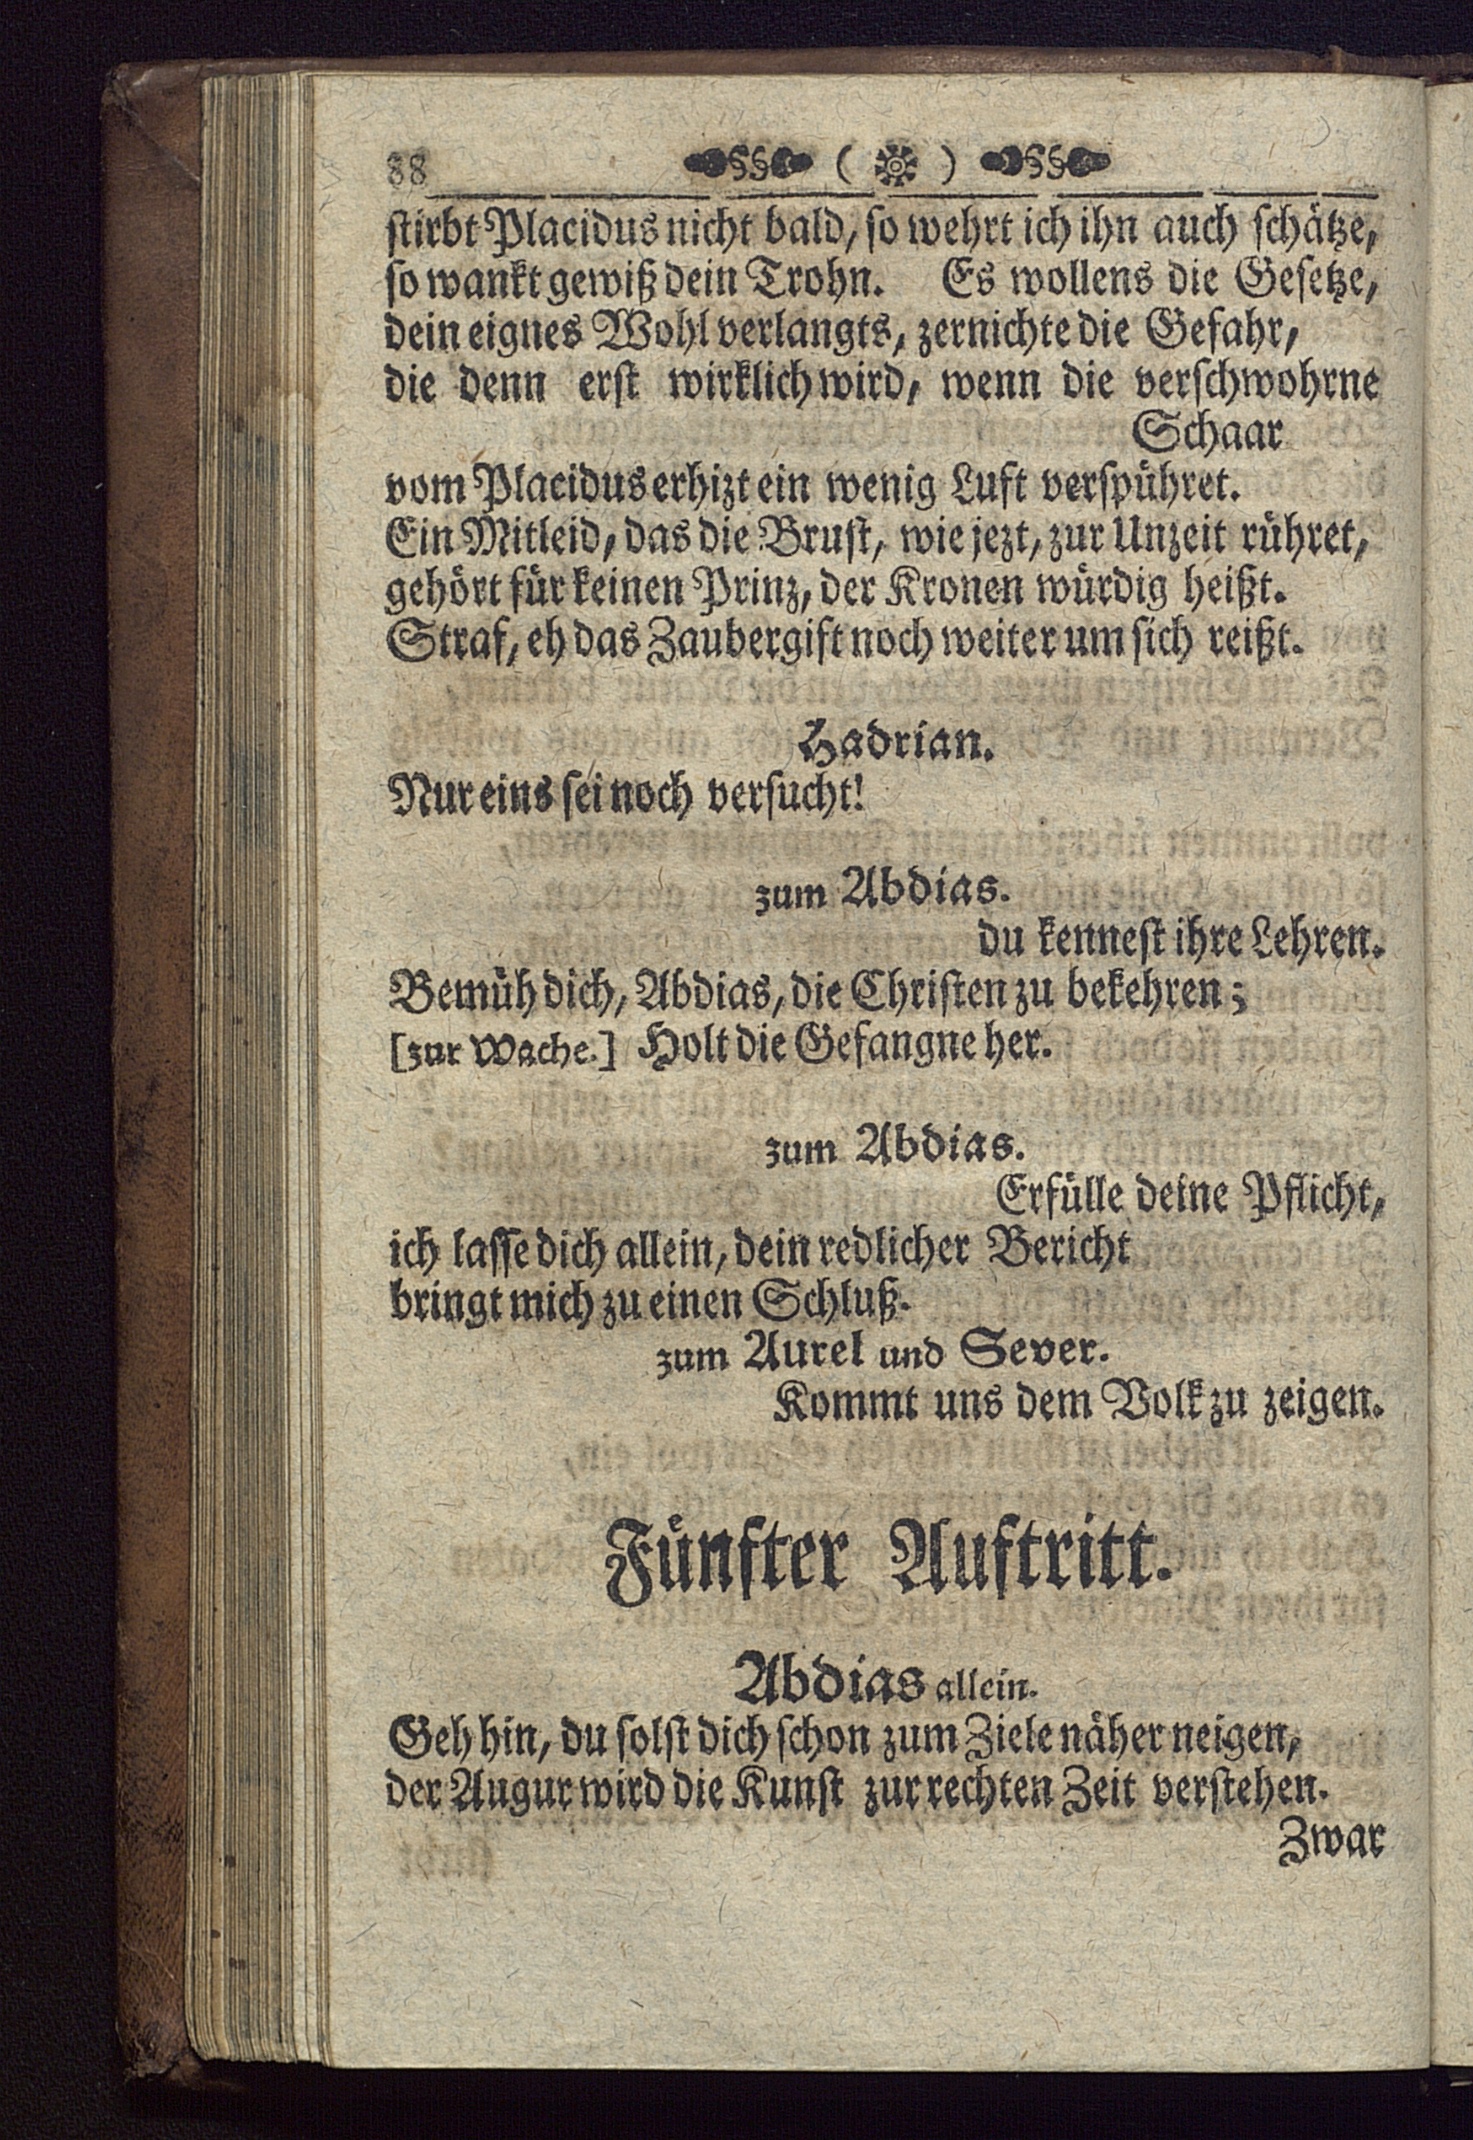 88 §§ ( ) §§
stirbt Placidus nicht bald, so wehrt ich ihn auch schätze,
so wankt gewiß dein Trohn. Es wollens die Gesetze,
dein eignes Wohl verlangts, zernichte die Gefahr,
die denn erst wirklich wird, wenn die verschwohrne
Schaar
vom Placidus erhizt ein wenig Luft verspühret.
Ein Mitleid, das die Brust, wie jezt, zur Unzeit rühret,
gehört für keinen Prinz, der Kronen würdig heißt.
Straf, eh das Zaubergift noch weiter um sich reißt.
Hadrian.
Nur eins sei noch versucht!
zum Abdias.
du kennest ihre Lehren.
Bemüh dich, Abdias, die Christen zu bekehren;
[zur Wache.] Holt die Gefangne her.
zum Abdias.
Erfülle deine Pflicht,
ich lasse dich allein, dein redlicher Bericht
bringt mich zu einen Schluß.
zum Aurel und Sever.
Kommt uns dem Volk zu zeigen.
Fünfter Auftritt.
Abdias allein.
Geh hin, du solst dich schon zum Ziele näher neigen,
der Augur wird die Kunst zur rechten Zeit verstehen.
Zwar